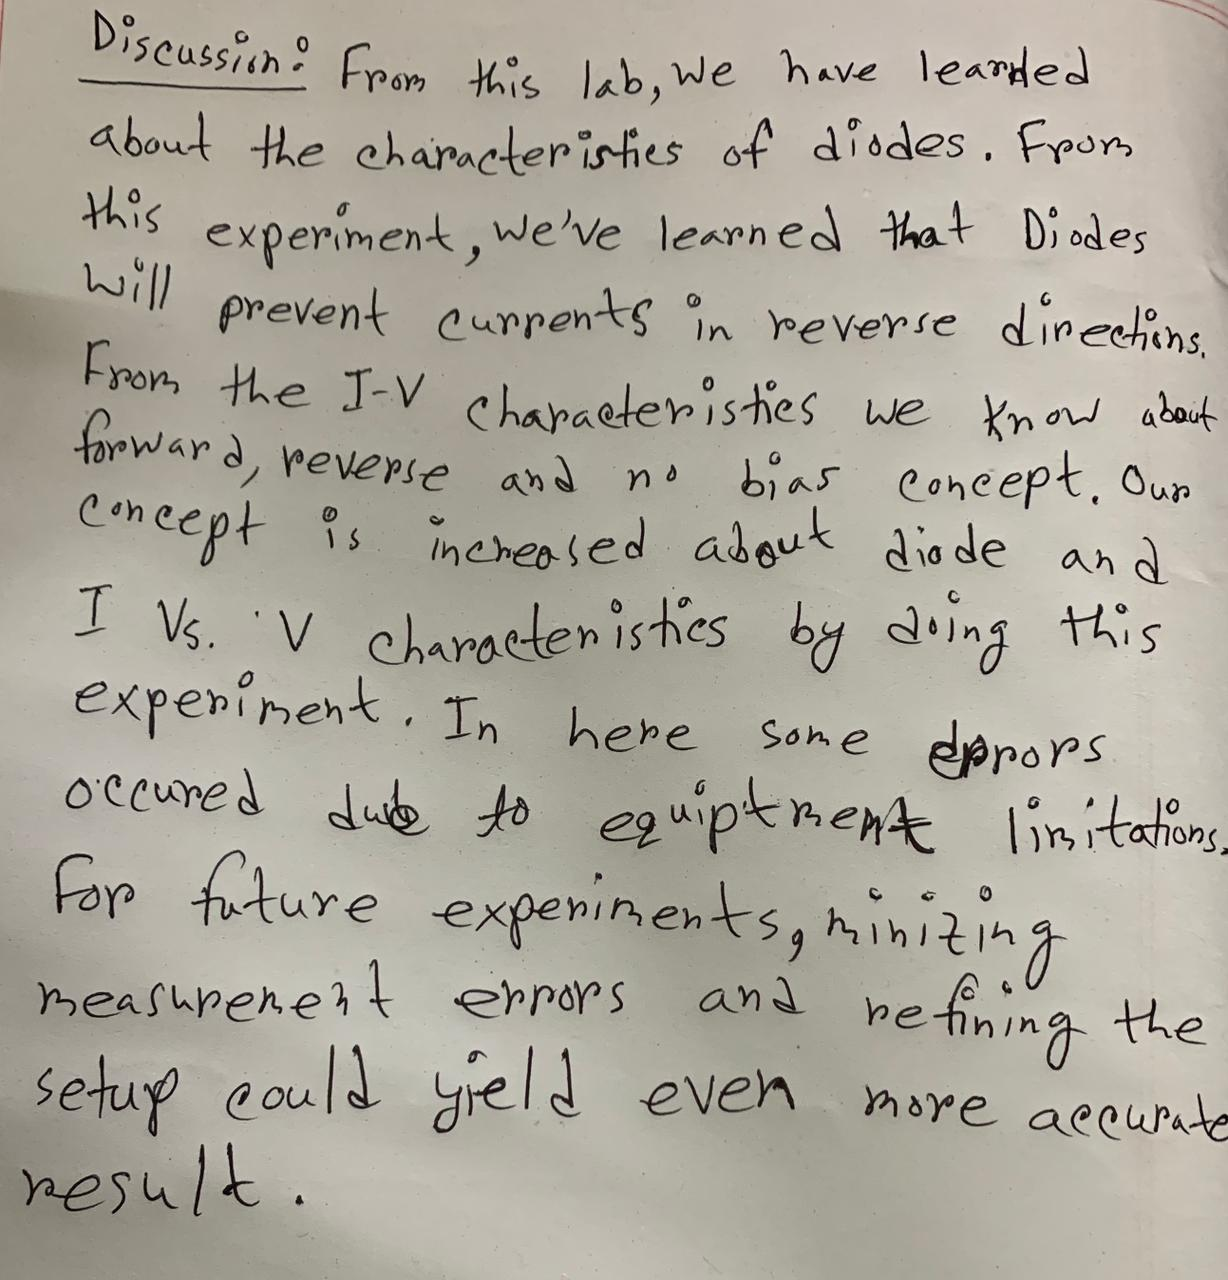 Discussion: From this lab, we have learned
about the characteristics of diodes. From
this experiment, we've learned that Diodes
will prevent currents in reverse directions.
From the I-V characteristics we know about
forward, reverse and no bias concept. Our
concept is increased about diode and
I Vs. V characteristics by doing this
experiment. In here some errors
occured due to equiptment limitations.
For future experiments, minizing
measurement errors and refining the
setup could yield even more accurate
result.